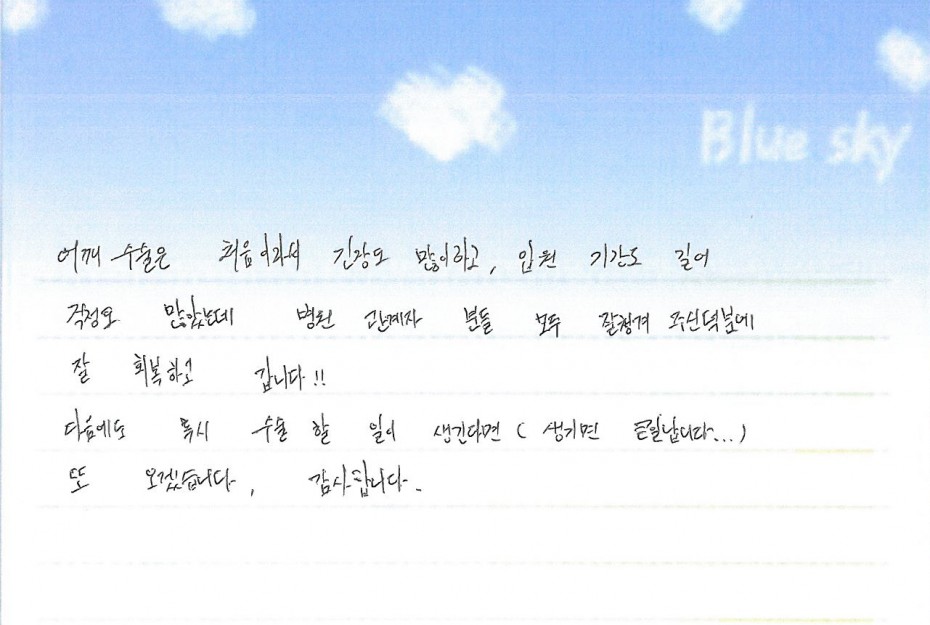 Blue sky
어깨 수술은 처음이라서 긴장도 많이하고, 입원 기간도 길어
걱정도 많았는데 병원 관계자 분들 모두 잘챙겨 주신덕분에
잘 회복하고 갑니다!!
다음에도 혹시 수술 할 일이 생긴다면 (생기면 큰일납니다...)
또 오겠습니다, 감사합니다.